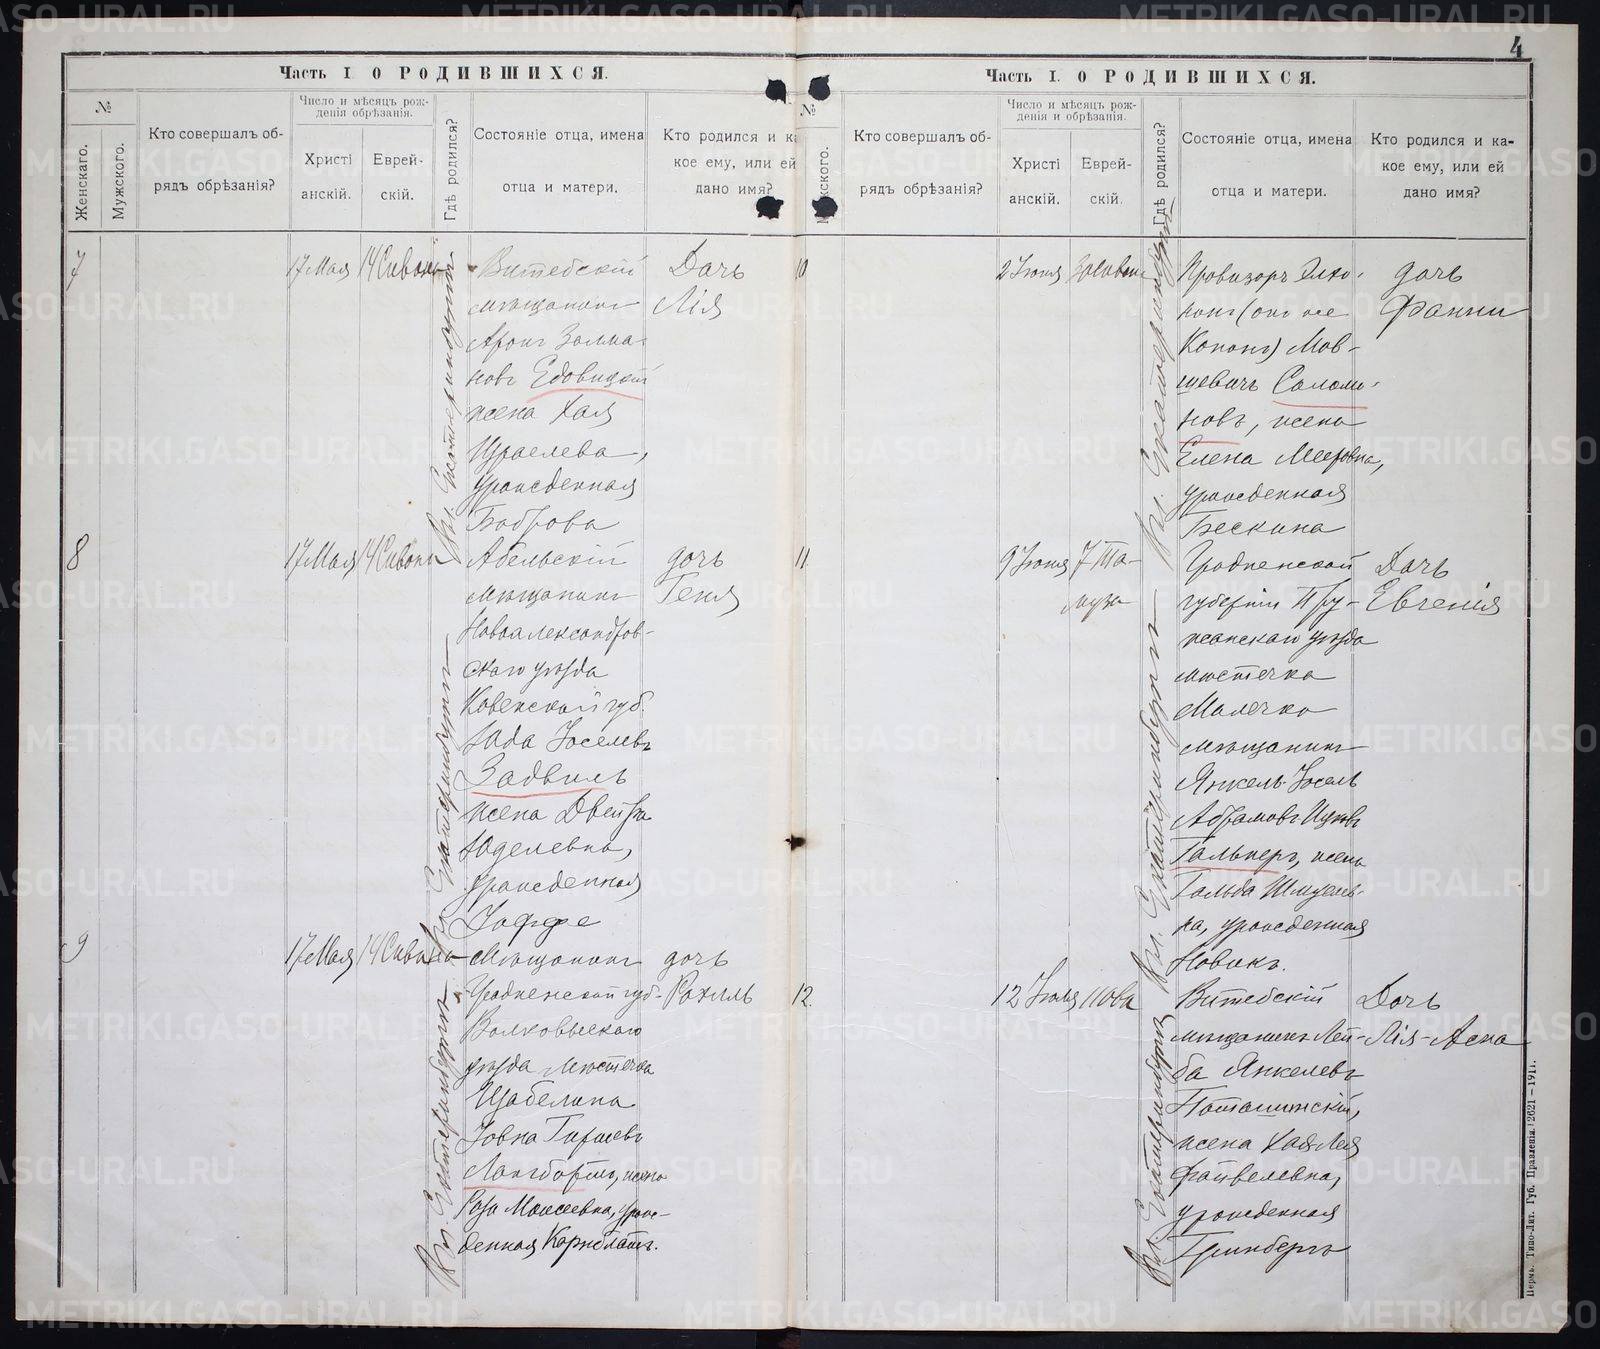 4
Часть I О РОДИВШИХСЯ.
№
Женскаго.
Мужского.
Кто совершалъ об-
рядъ обрѣзанія?
Число и мѣсяцъ рож-
денія обрѣзанія.
Христі
анскій.
Еврей-
скій.
Гдѣ родился?
Состояніе отца, имена
отца и матери.
Кто родился и ка
кое ему, или ей
дано имя?
7
17 Мая
14 Сивана
Въ г. Екатеринбургѣ
Витебскій
мѣщанинъ
Аронъ Залма-
новъ
жена Хая
Израелева,
урожденная
Боброва
Дочь
Лія
8
17 Мая
14 Сивана
Въ г. Екатеринбургѣ
Абельскій
мѣщанинъ
Новоалександров-
скаго уѣзда
Ковенской губ.
Юда Іоселевъ
Задвиль
жена Двейра
Юделевна,
урожденная
Іоффе
дочь
Геня
9
17 Мая
14 Сивана
Въ г. Екатеринбургѣ
Мѣщанинъ
Гродненской губ.
Волковыскаго
уѣзда мѣстечка
Щабелина
Іовна Гиршевъ
Лангбортъ, жена
Роза Моисеевна, урож-
денная Корнблатъ.
дочь
Рахиль
Часть I. О РОДИВШИХСЯ.
№
Кто совершалъ об-
рядъ обрѣзанія?
Число и мѣсяцъ рож-
денія и обрѣзанія.
Христі
анскій.
Еврей-
скій.
Гдѣ родился?
Состояніе отца, имена
отца и матери.
Кто родился и ка-
кое ему, или ей
дано имя?
10
2 Іюня
Въ г. Екатеринбургѣ
Провизоръ Элхо-
нонъ (онъ же
Кононъ) Мов-
шевичъ Саломи-
новъ, жена
Елена Мееровна,
урожденная
Бескина
дочь
Фанни
11
9 Іюня
7 Та-
муза
Въ г. Екатеринбургѣ
Гродненской
губерніи Пру-
жанскаго уѣзда
мѣстечка
Малечко
мѣщанинъ
Янкель-Іосель
Абрамовъ-Ицковъ
Гальперъ, жена
Гольда Шмуель-
на, урожденная
Новикъ.
Дочь
Евгенія
12
12 Іюля
11 Ова
Въ г. Екатеринбургѣ
Витебскій
мѣщанинъ Лей-
ба Янкелевъ
жена Хая-Лея
Файвелевна,
урожденная
Гринбергъ
Дочь
Лія-Асна
Пермь. Типо-Лит. Губ. Правленія. 2621—1911.
METRIKI.GASO-URAL.RU